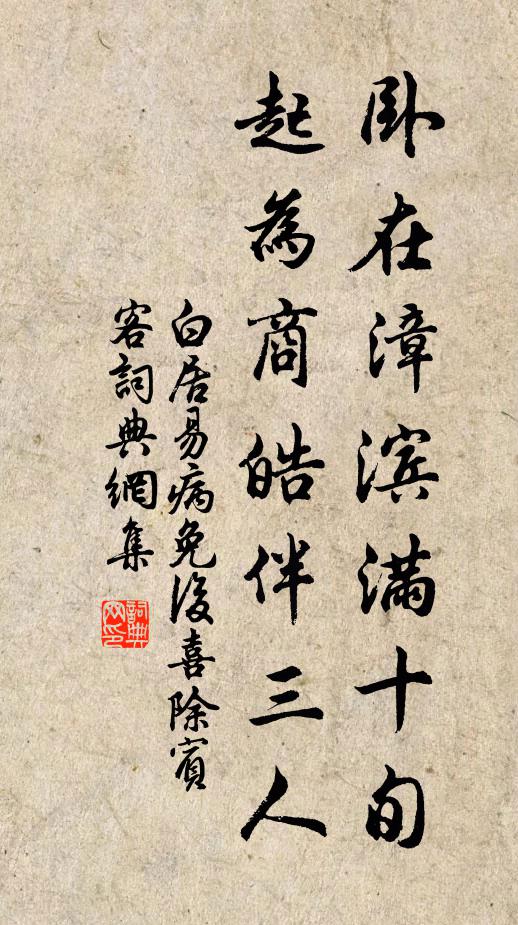 卧在漳滨满十旬
起為商皓伴三人
白居易病免後喜除賓
客詞典網集
詞典
网印